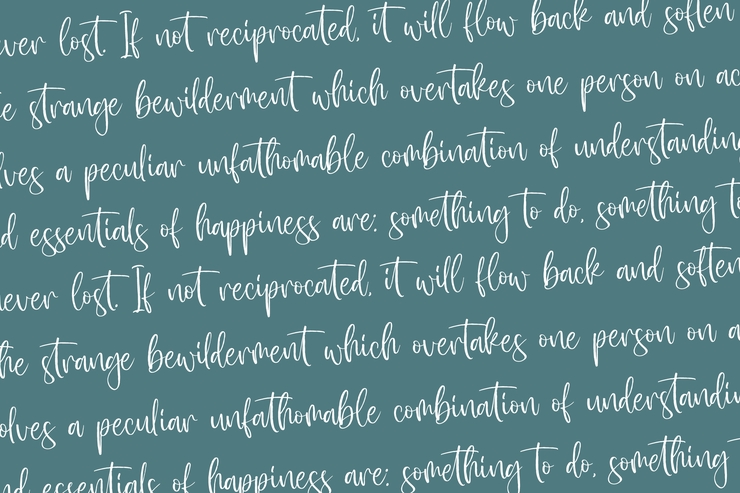 ever lost. If not reciprocated, it will flow back and soften
e strange bewilderment which overtakes one person on ac
lves a peculiar unfathomable combination of understanding
d essentials of happiness are: something to do, something to
never lost. If not reciprocated, it will flow back and soften
he strange bewilderment which overtakes one person on a
olves a peculiar unfathomable combination of understandin
nd essentials of happiness are: something to do, something